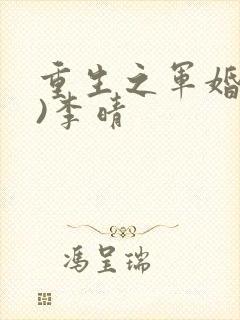 重生之军婚
)李晴
冯呈瑞